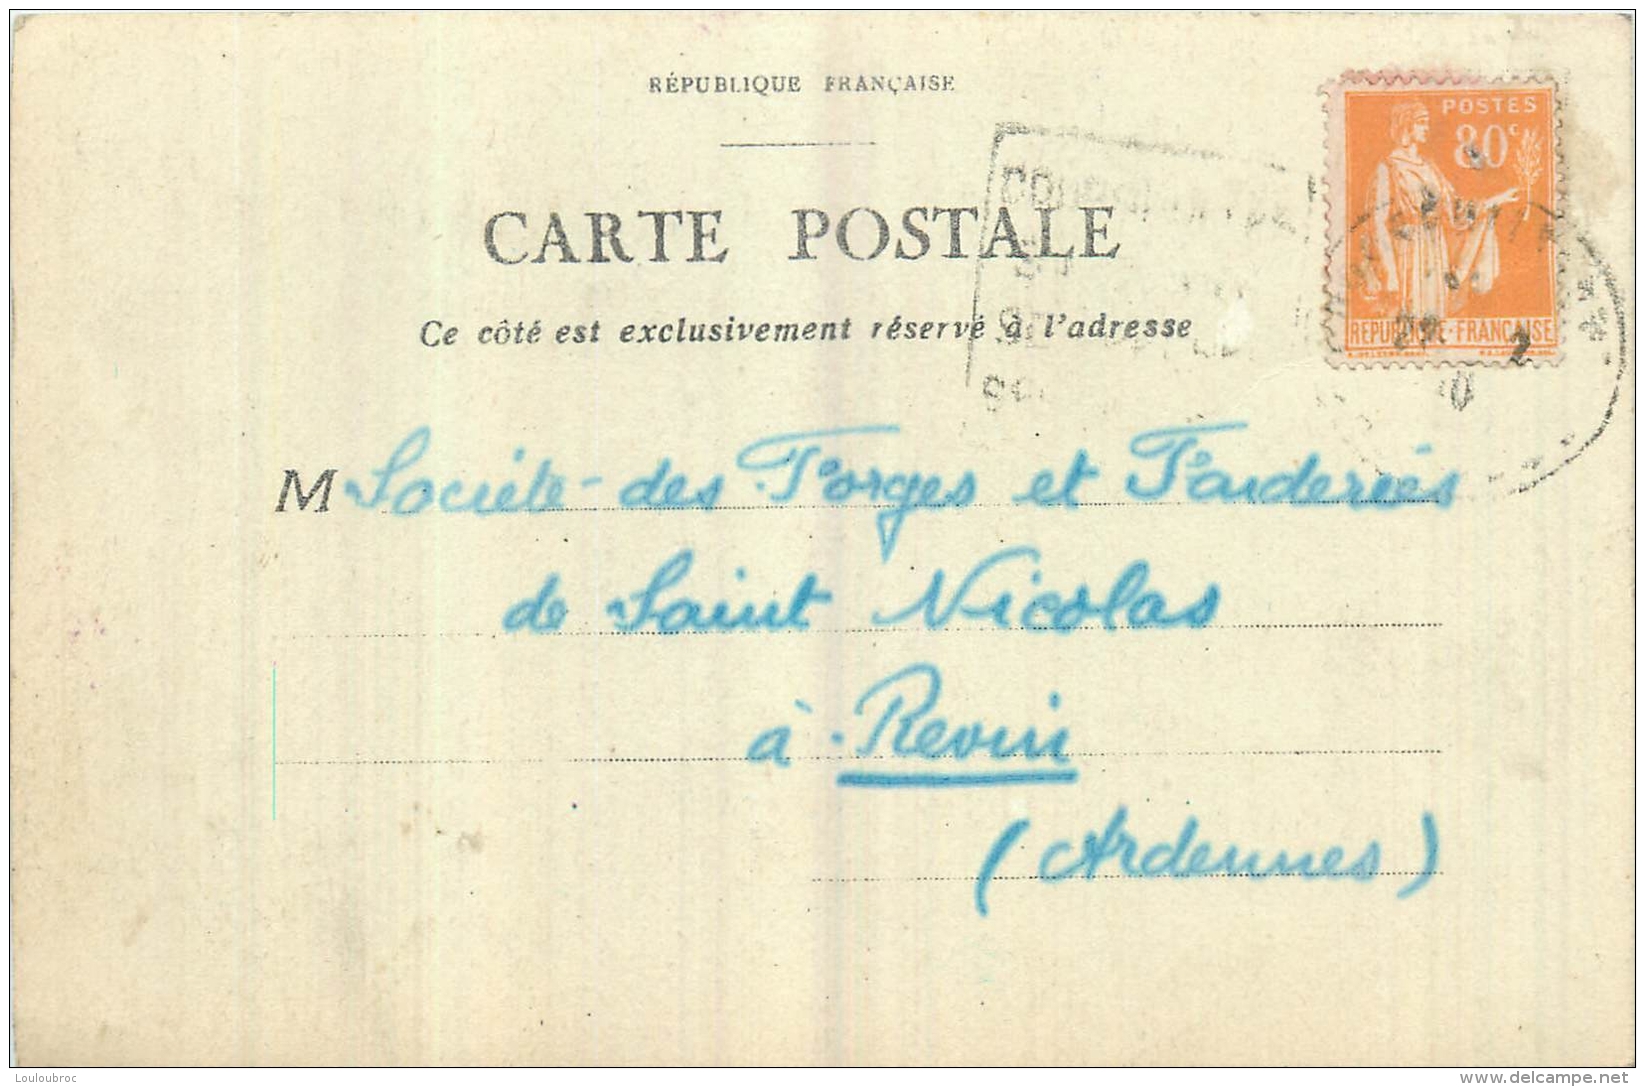 RÉPUBLIQUE FRANÇAISE
POSTES
80c
CARTE POSTALE
Ce côté est exclusivement réservé à l'adresse
REPUBLIQUE·FRANÇAISE
M Société des Forges et Fonderies
de Saint Nicolas
à Revin
(Ardennes)
Louloubroc
delcampe.net